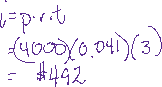 i=p.r.t
=(4000)(0.041)(3)
= $492